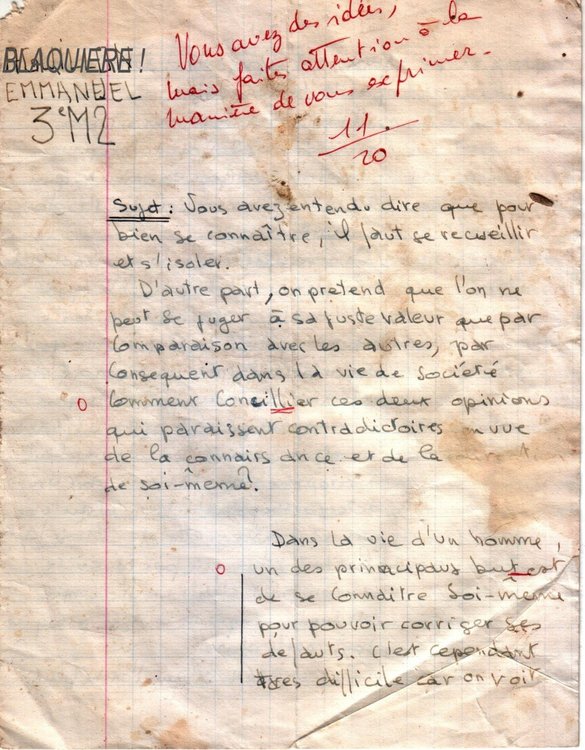 BLAQUIERE!
EMMANUEL
3eM2
Vous avez des idées,
mais faites attention à la
manière de vous exprimer.
11/20
Sujet: Vous avez entendu dire que pour
bien se connaître, il faut se recueillir
et s'isoler.
D'autre part, on pretend que l'on ne
peut se juger à sa juste valeur que par
Comparaison avec les autres, par
Consequent dans la vie de société
Comment Conceillier ces deux opinions
qui paraissent contradictoires vue
de la connaissance et de la
de soi-même?
Dans la vie d'un homme,
un des principaus but est
de se connaitre Soi-même
pour pouvoir corriger ses
défauts. C'est cependant
très difficile car on voit